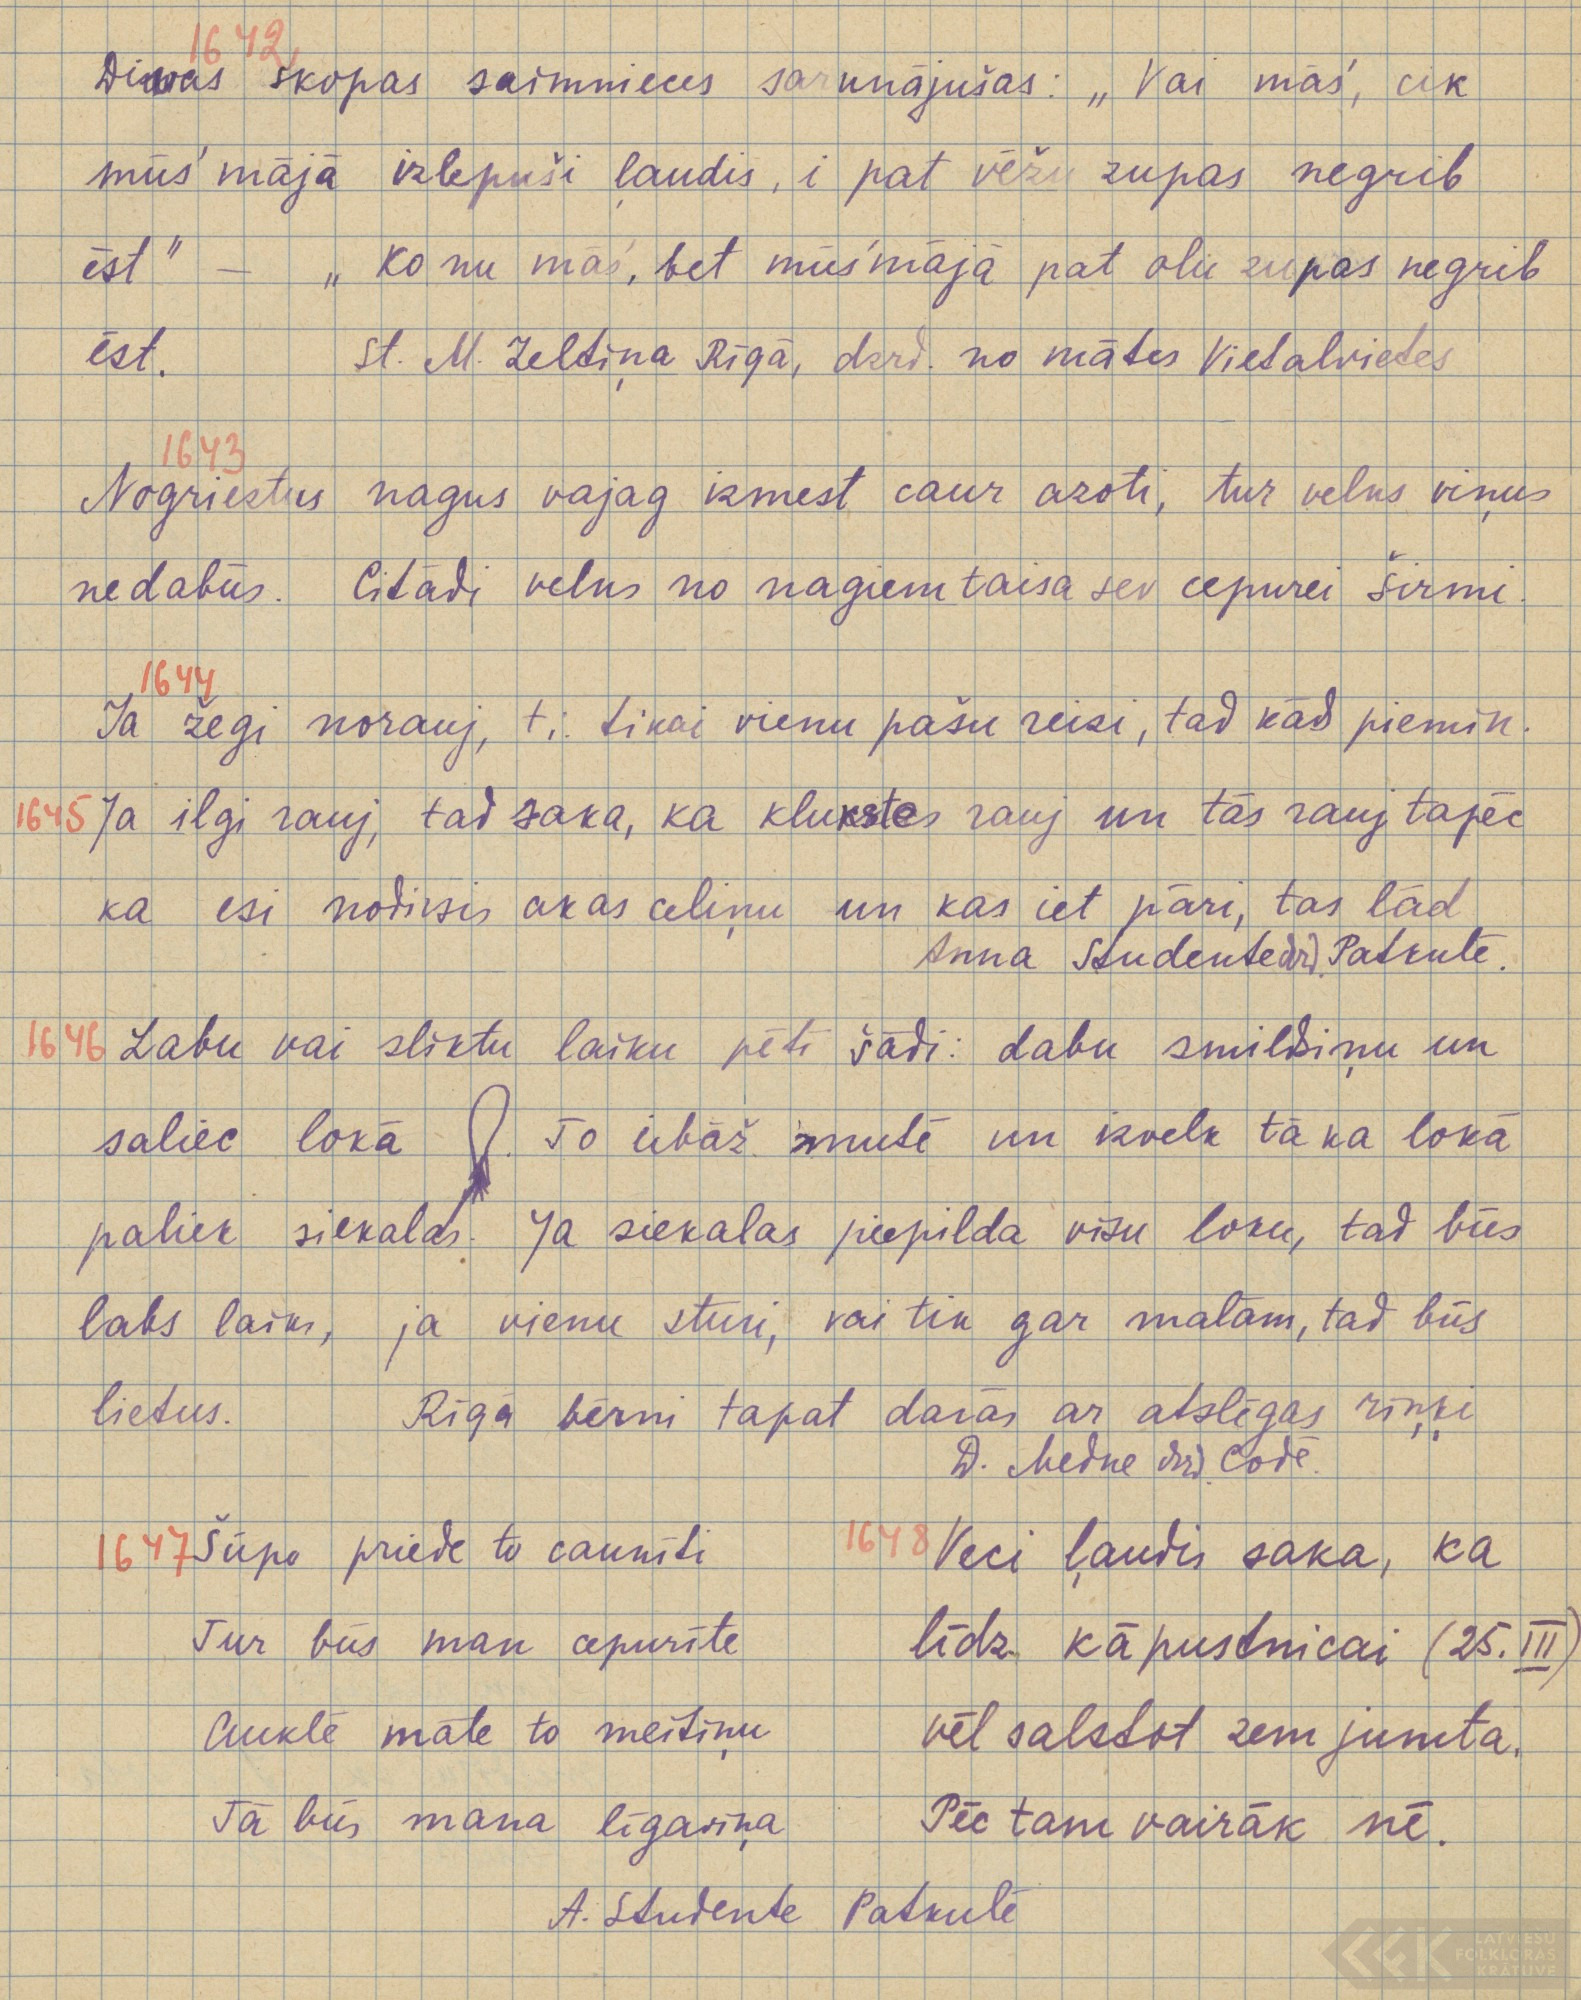 1642
Divas skopas saimnieces sarunājušas: „Vai mās', cik
mūs' mājā izlepuši ļaudis, i pat vēžu zupas negrib
ēst" — „Ko nu mās', bet mūs' mājā pat olu zupas negrib
ēst. St. M. Zeltiņa Rīgā, dzrd. no mātes Vietalvietes
1643
Nogrieztus nagus vajag izmest caur azoti, tur velns viņus
nedabūs. Citādi velns no nagiem taisa sev cepurei širmi.
1644
Ja žegi norauj, t.i. tikai vienu pašu reizi, tad kāds piemin.
1645 Ja ilgi rauj, tad saka, ka klukstes rauj un tās rauj tapēc
ka esi nodirsis akas celiņu un kas iet pāri, tas lād
Anna Studente dzrd. Patkulē.
1646 Labu vai sliktu laiku pētī šādi: dabu smildziņu un
saliec lokā. To iebāž mutē un izvelk tā ka lokā
paliek siekalas. Ja siekalas piepilda visu loku, tad būs
labs laiks, ja vienu stūri, vai tik gar malām, tad būs
lietus. Rīgā bērni tāpat darās ar atslēgas riņķi
D. Medne dzrd. Codē.
1647 Šūpo priede to caunīti
Tur būs man cepurīte
Auklē māte to meitiņu
Tā būs mana līgaviņa
1648 Veci ļaudis saka, ka
līdz kāpustnicai (25. III)
vēl salstot zem jumta.
Pēc tam vairāk nē.
A. Studente Patkulē
LATVIEŠU
FOLKLORAS
KRĀTUVE